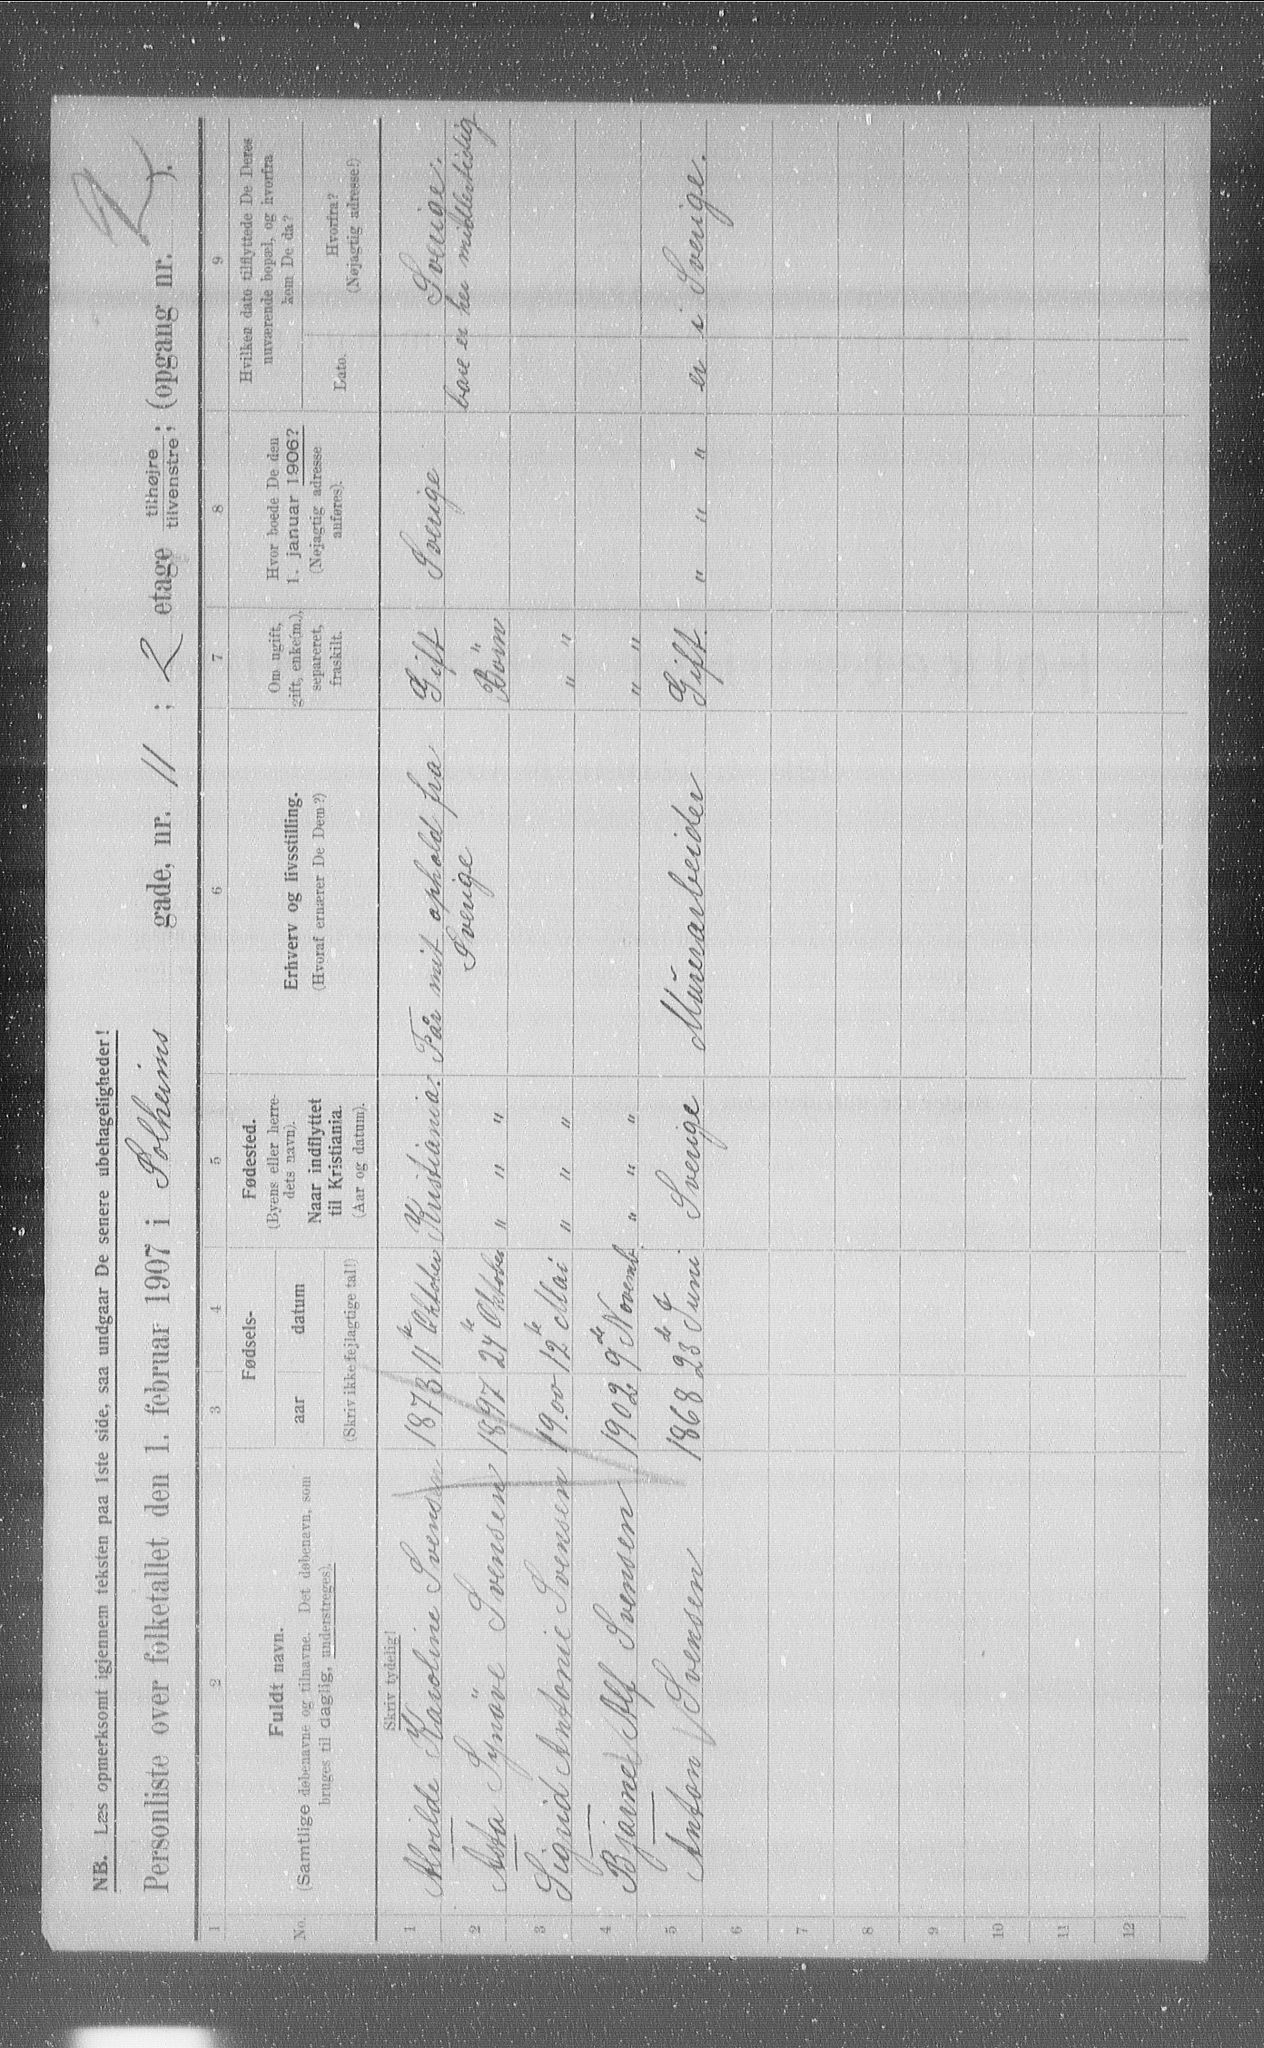 NB. Læs opmerksomt igjennem teksten paa 1ste side, saa undgaar De senere ubehageligheder!
Personliste over folketallet den 1. februar 1907 i Solheims gade, nr. 11 ; 2 etage tilhøjre tilvenstre ; (opgang nr. 2 ).
1 2 3 4 5 6 7 8 9
No.
Fuldt navn.
(Samtlige døbenavne og tilnavne. Det døbenavn, som
bruges til daglig, understreges).
Fødsels-
aar datum
(Skriv ikke fejlagtige tal!)
Fødested.
(Byens eller herre-
dets navn).
Naar indflyttet
til Kristiania.
(Aar og datum).
Erhverv og livsstilling.
(Hvoraf ernærer De Dem?)
Om ugift,
gift, enke(m.),
separeret,
fraskilt.
Hvor boede De den
1. januar 1906?
(Nøjagtig adresse
anføres).
Hvilken dato tilflyttede De Deres
nuværende bopæl, og hvorfra
kom De da?
Dato.
Hvorfra?
(Nøjagtig adresse!)
Skriv tydelig!
1 Alvilde Karoline Svensen 1873 11te Oktober Kristiania. Får mit ophold fra Gift Sverige Sverige.
2 Asta Synøve Svensen 1897 24de Oktober " " " Sverige Barn " bare er her midlertidig
3 Sigrid Antonie Svensen 1900 12te Mai " " " " "
4 Bjarne Alf Svensen 1902 9de Novemb. " " " " "
5 Anton Svensen 1868 23de Juni Sverige Murerarbeider Gift. " " " er i Sverige.
6
7
8
9
10
11
12